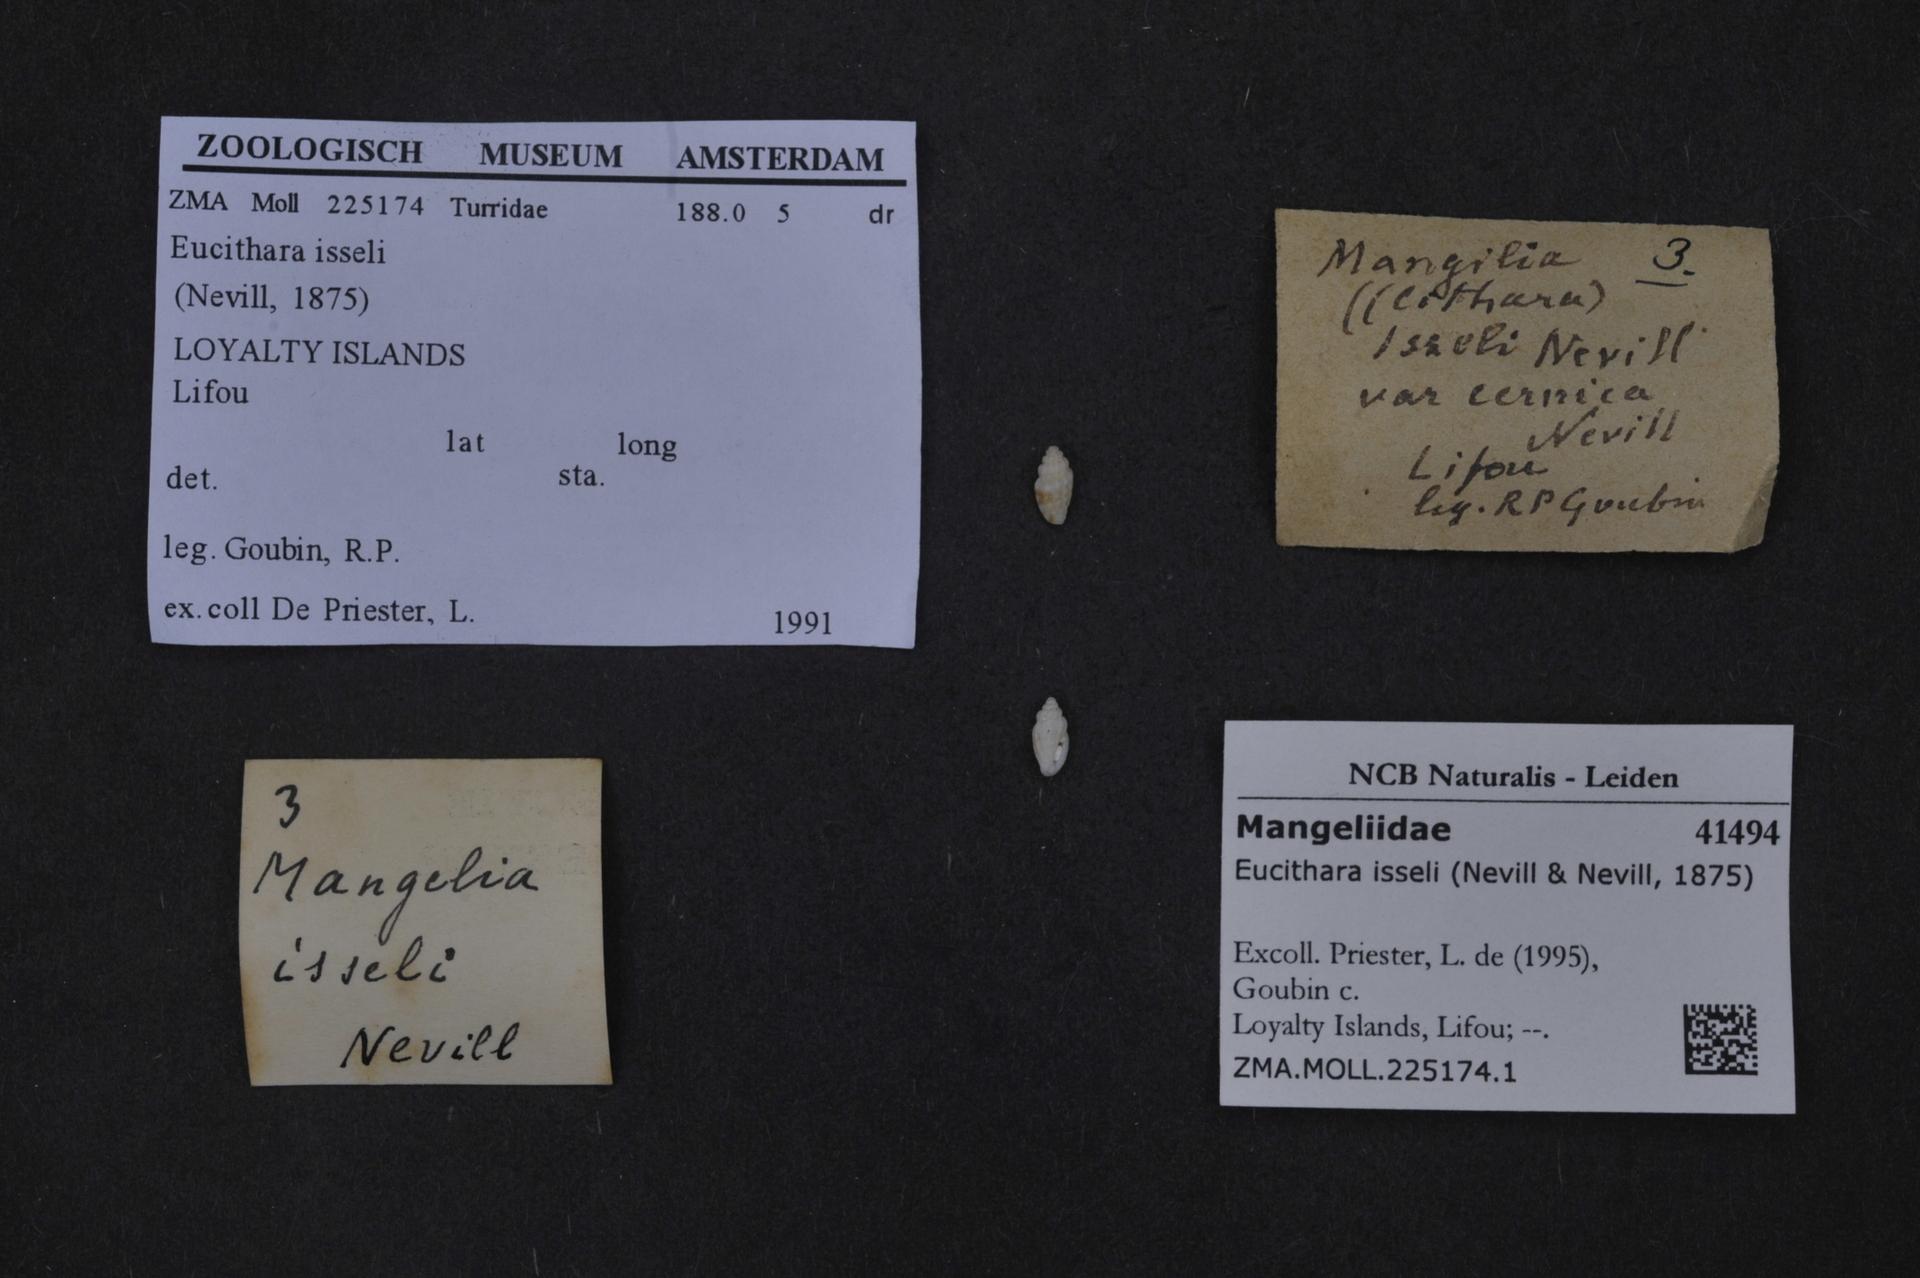 ZOOLOGISCH MUSEUM AMSTERDAM
ZMA Moll 225174 Turridae 188.0 5 dr
Eucithara isseli
(Nevill, 1875)
LOYALTY ISLANDS
Lifou
lat long
det. sta.
leg. Goubin, R.P.
ex. coll De Priester, L. 1991
Mangilia 3.
((Cithara)
Isseli Nevill
var cernica
Nevill
Lifou
leg. RP Goubin
3
Mangelia
isseli
Nevill
NCB Naturalis - Leiden
Mangeliidae 41494
Eucithara isseli (Nevill & Nevill, 1875)
Excoll. Priester, L. de (1995),
Goubin c.
Loyalty Islands, Lifou; --.
ZMA.MOLL.225174.1